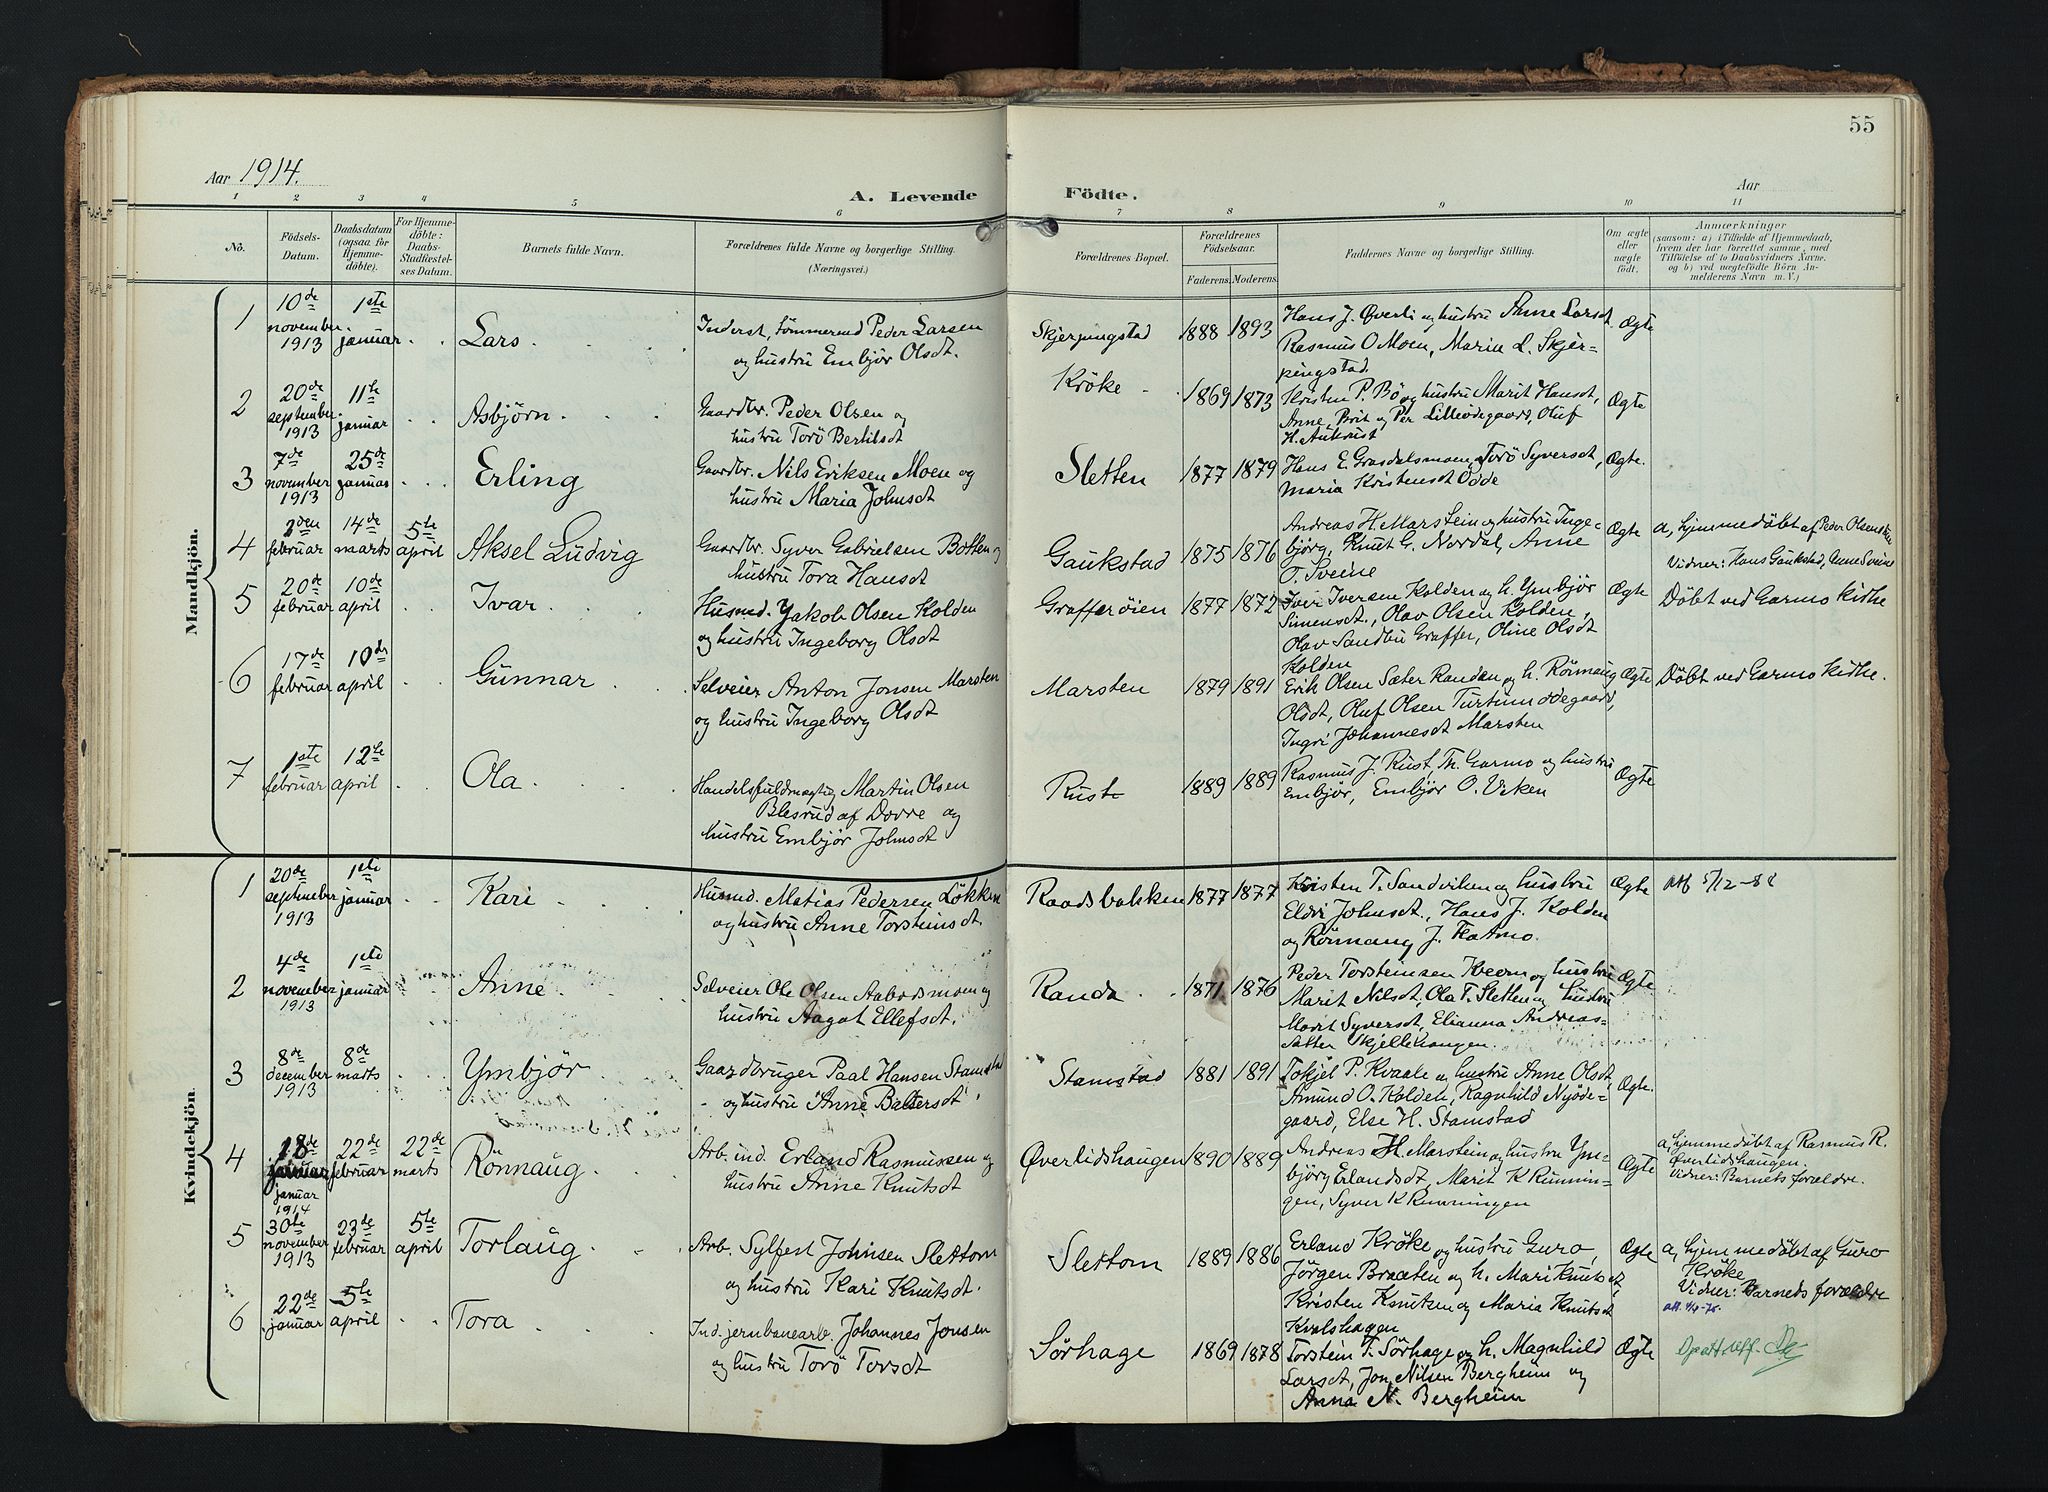 55
Aar 1914.
A. Levende Födte.
Aar
1 2 3 4 5 6 7 8 9 10 11
No.
Födsels-
Datum.
Daabsdatum
(ogsaa for
Hjemme-
döbte).
For Hjemme-
döbte:
Daabs-
Stadfæstel-
ses Datum.
Barnets fulde Navn.
Forældrenes fulde Navne og borgerlige Stilling.
(Næringsvei.)
Forældrenes Bopæl.
Forældrenes
Födselsaar.
Faderens. Moderens.
Faddernes Navne og borgerlige Stilling.
Om ægte
eller
uægte
födt.
Anmærkninger
(saasom: a) i Tilfælde af Hjemmedaab,
hvem der har forrettet samme, med
Tilföielse af to Daabsvidners Navne.
og b) ved uægtefödte Börn An-
melderens Navn m. V.)
Mandkjön.
1
10de
november
1913
1ste
januar
Lars
Inderst, tömmermd Peder Larsen
og hustru Embjör Olsdt.
Skjerpingstad
1888 1893
Hans J. Øverli og hustru Anne Larsdt.
Rasmus O Moen, Marie L. Skjer-
pingstad.
Ægte
2
20de
september
1913
11te
januar
Asbjörn
Gaardbr. Peder Olsen og
hustru Torö Bertilsdt
Kröke
1869 1873
Kristen P. Bö og hustru Marit Hansdt,
Anne, Brit og Per Lilleödegaard, Oluf
H. Aukrust
Ægte
3
7de
november
1913
25de
januar
Erling
Gaardbr. Nils Eriksen Moen og
hustru Maria Johnsdt
Sletten
1877 1879
Hans E. Grasdalsmoen, Torö Syversdt,
Maria Kristensdt Odde
Ægte.
4
2den
februar
14de
marts
5te
april
Aksel Ludvig
Gaardbr. Syver Gabrielsen Botten og
hustru Tora Hansdt
Gaukstad
1875 1876
Andreas H. Marstein og hustru Inge-
björg, Knut G. Nordal, Anne
T. Sveine
Ægte
a, hjemmedöbt af Peder Olsen
Vidner: Hans Gaukstad, Anne Sveine
5
20de
februar
10de
april
Ivar
Husmd. Yakob Olsen Kolden
og hustru Ingeborg Olsdt
Grafferöien
1877 1872
Iver Iversen Kolden og h. Ymbjör
Simensdt., Olav Olsen Kolden,
Olav Sandbu Graffer, Oline Olsdt
Kolden
Ægte
Döbt ved Garmo kirke
6
17de
februar
10de
april
Gunnar
Selveier Anton Jonsen Marsten
og hustru Ingeborg Olsdt
Marsten
1879 1891
Erik Olsen Sæter Randen og h. Rönnaug
Olsdt, Oluf Olsen Turtumödegaard,
Ingri Johannesdt Marsten
Ægte
Döbt ved Garmo kirke.
7
1ste
februar
12te
april
Ola
Handelsfuldmægtig Martin Olsen
Blesrud af Dovre og
hustru Embjör Johnsdt
Rust
1889 1889
Rasmus J. Rust, Th. Garmo og hustru
Embjör, Embjör O. Veken
Ægte
Kvindekjön.
1
20de
september
1913
1ste
januar
Kari
Husmd. Matias Pedersen Lökken
og hustru Anne Torsteinsdt.
Raadsbakken
1877 1877
Kristen T. Sandviken og hustru
Eldri Johnsdt., Hans J. Kolden
og Rönnaug J. Flatmo.
Ægte
att 5/12-88
2
4de
november
1913
1ste
januar
Anne
Selveier Ole Olsen Aabodsmoen og
hustru Aagot Ellefsdt.
Randa
1871 1876
Peder Torsteinsen Kvern og hustru
Marit Nilsdt, Ola T. Sletten og hustru
Marit Syversdt, Elianna Andreas-
datter Skjellehaugen.
Ægte
3
8de
december
1913
8de
marts
Ymbjör
Gaardbruger Paal Hansen Stamstad
og hustru Anne Baltersdt.
Stamstad
1881 1891
Tokjel P. Kvaale og hustru Anne Olsdt,
Amund O. Kolden, Ragnhild Nyöde-
gaard, Else H. Stamstad
Ægte.
4
18de
januar
januar
1914
22de
februar
22de
marts
Rönnaug
Arb. ind. Erland Rasmussen og
hustru Anne Knutsdt
Øverlidshaugen
1890 1889
Andreas H. Marstein og hustru Ym-
björg Erlandsdt, Marit K Runnin-
gen, Syver K Runningen
Ægte
a, hjemmedöbt af Rasmus R.
Øverlidshaugen.
Vidner: Barnets forældre.
5
30te
november
1913
23de
februar
5te
april
Torlaug
Arb. Sylfest Johnsen Slettom
og hustru Kari Knutsdt.
Slettom
1889 1886
Erland Kröke og hustru Guro,
Jörgen Braaten og h. Mari Knutsdt,
Kristen Knutsen og Maria Knutsdt
Kvalshagen
Ægte
a, hjemmedöbt af Guro
Kröke
Vidner: Barnets forældre
6
22de
januar
5te
april
Tora
Ind. jernbanearb. Johannes Jonsen
og hustru Torö Torsdt
Sörhage
1869 1878
Torstein T. Sörhage og h. Magnhild
Larsdt, Jon Nilsen Bergheim og
Anna N. Bergheim
Ægte